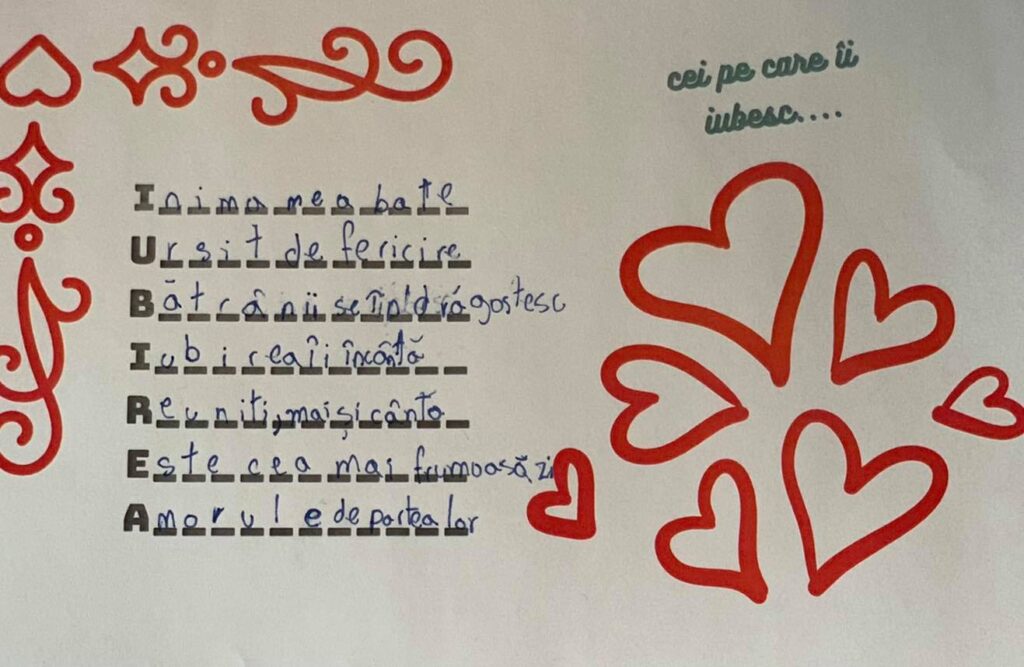 cei pe care îi
iubesc....
Inima mea bate
Ursit de fericire
Bătrânii se îndrăgostesc
Iubirea îi încântă
Reuniți, mai și cântă
Este cea mai frumoasă zi
Amorul e de partea lor